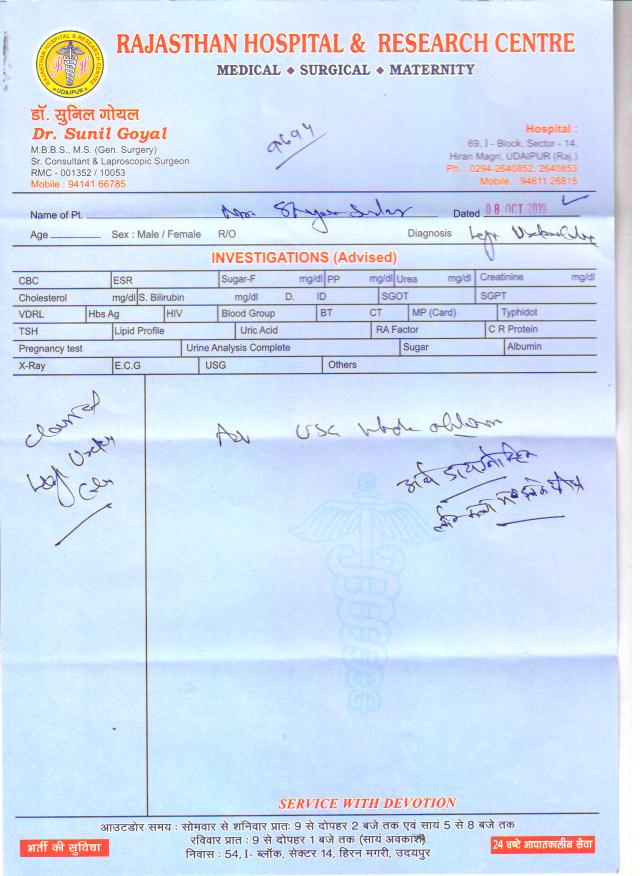 RAJASTHAN HOSPITAL & RESEARCH CENTRE
UDAIPUR
RAJASTHAN HOSPITAL & RESEARCH CENTRE
MEDICAL ◆ SURGICAL ◆ MATERNITY
डॉ. सुनिल गोयल
Dr. Sunil Goyal
M.B.B.S., M.S. (Gen. Surgery)
Sr. Consultant & Laproscopic Surgeon
RMC - 001352 / 10053
Mobile : 94141 66785
Hospital :
69, I - Block, Sector - 14,
Hiran Magri, UDAIPUR (Raj.)
Ph. : 0294-2640852, 2640853
Mobile : 94611 26815
Name of Pt. Dated 08 OCT 2019
Age Sex : Male / Female R/O Diagnosis
INVESTIGATIONS (Advised)
CBC ESR Sugar-F mg/dl PP mg/dl Urea mg/dl Creatinine mg/dl
Cholesterol mg/dl S. Bilirubin mg/dl D. ID SGOT SGPT
VDRL Hbs Ag HIV Blood Group BT CT MP (Card) Typhidot
TSH Lipid Profile Uric Acid RA Factor C R Protein
Pregnancy test Urine Analysis Complete Sugar Albumin
X-Ray E.C.G USG Others
Adv USG whole abdomen
SERVICE WITH DEVOTION
आउटडोर समय : सोमवार से शनिवार प्रातः 9 से दोपहर 2 बजे तक एवं सायं 5 से 8 बजे तक
रविवार प्रातः : 9 से दोपहर 1 बजे तक (सायं अवकाश)
निवास : 54, I- ब्लॉक, सेक्टर 14, हिरन मगरी, उदयपुर
भर्ती की सुविधा
24 घण्टे आपातकालीन सेवा